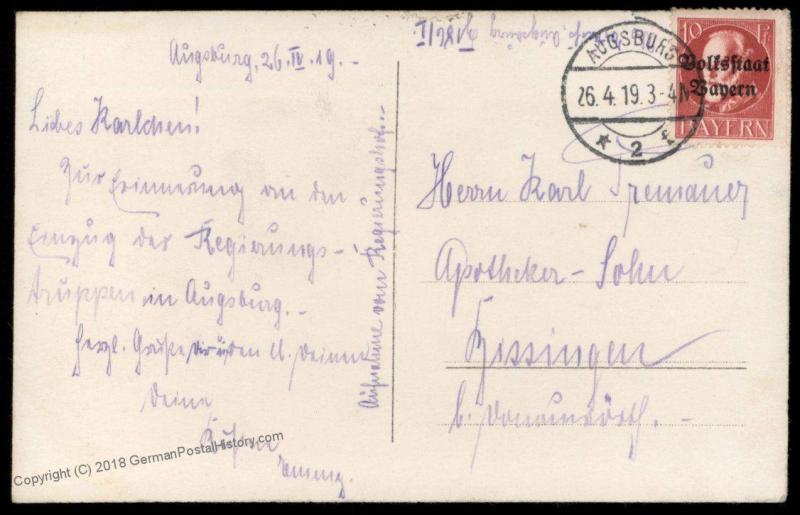 Augsburg, 26. IV. 19. -
Liebes Karlchen!
Zur Erinnerung an den
Einzug der Regierungs-
truppen in Augsburg. -
herzl. Grüße dir u. den Deinen
Deine
Emmy.
Aufnahme vom Regierungshof. -
Augsburg
AUGSBURG
26.4.19.3-4N
* 2 *
10 Pf
Volksstaat
Bayern
BAYERN
Herrn Karl
Apotheker-Sohn
Bissingen
b. Donauwörth. -
Copyright (C) 2018 GermanPostalHistory.com